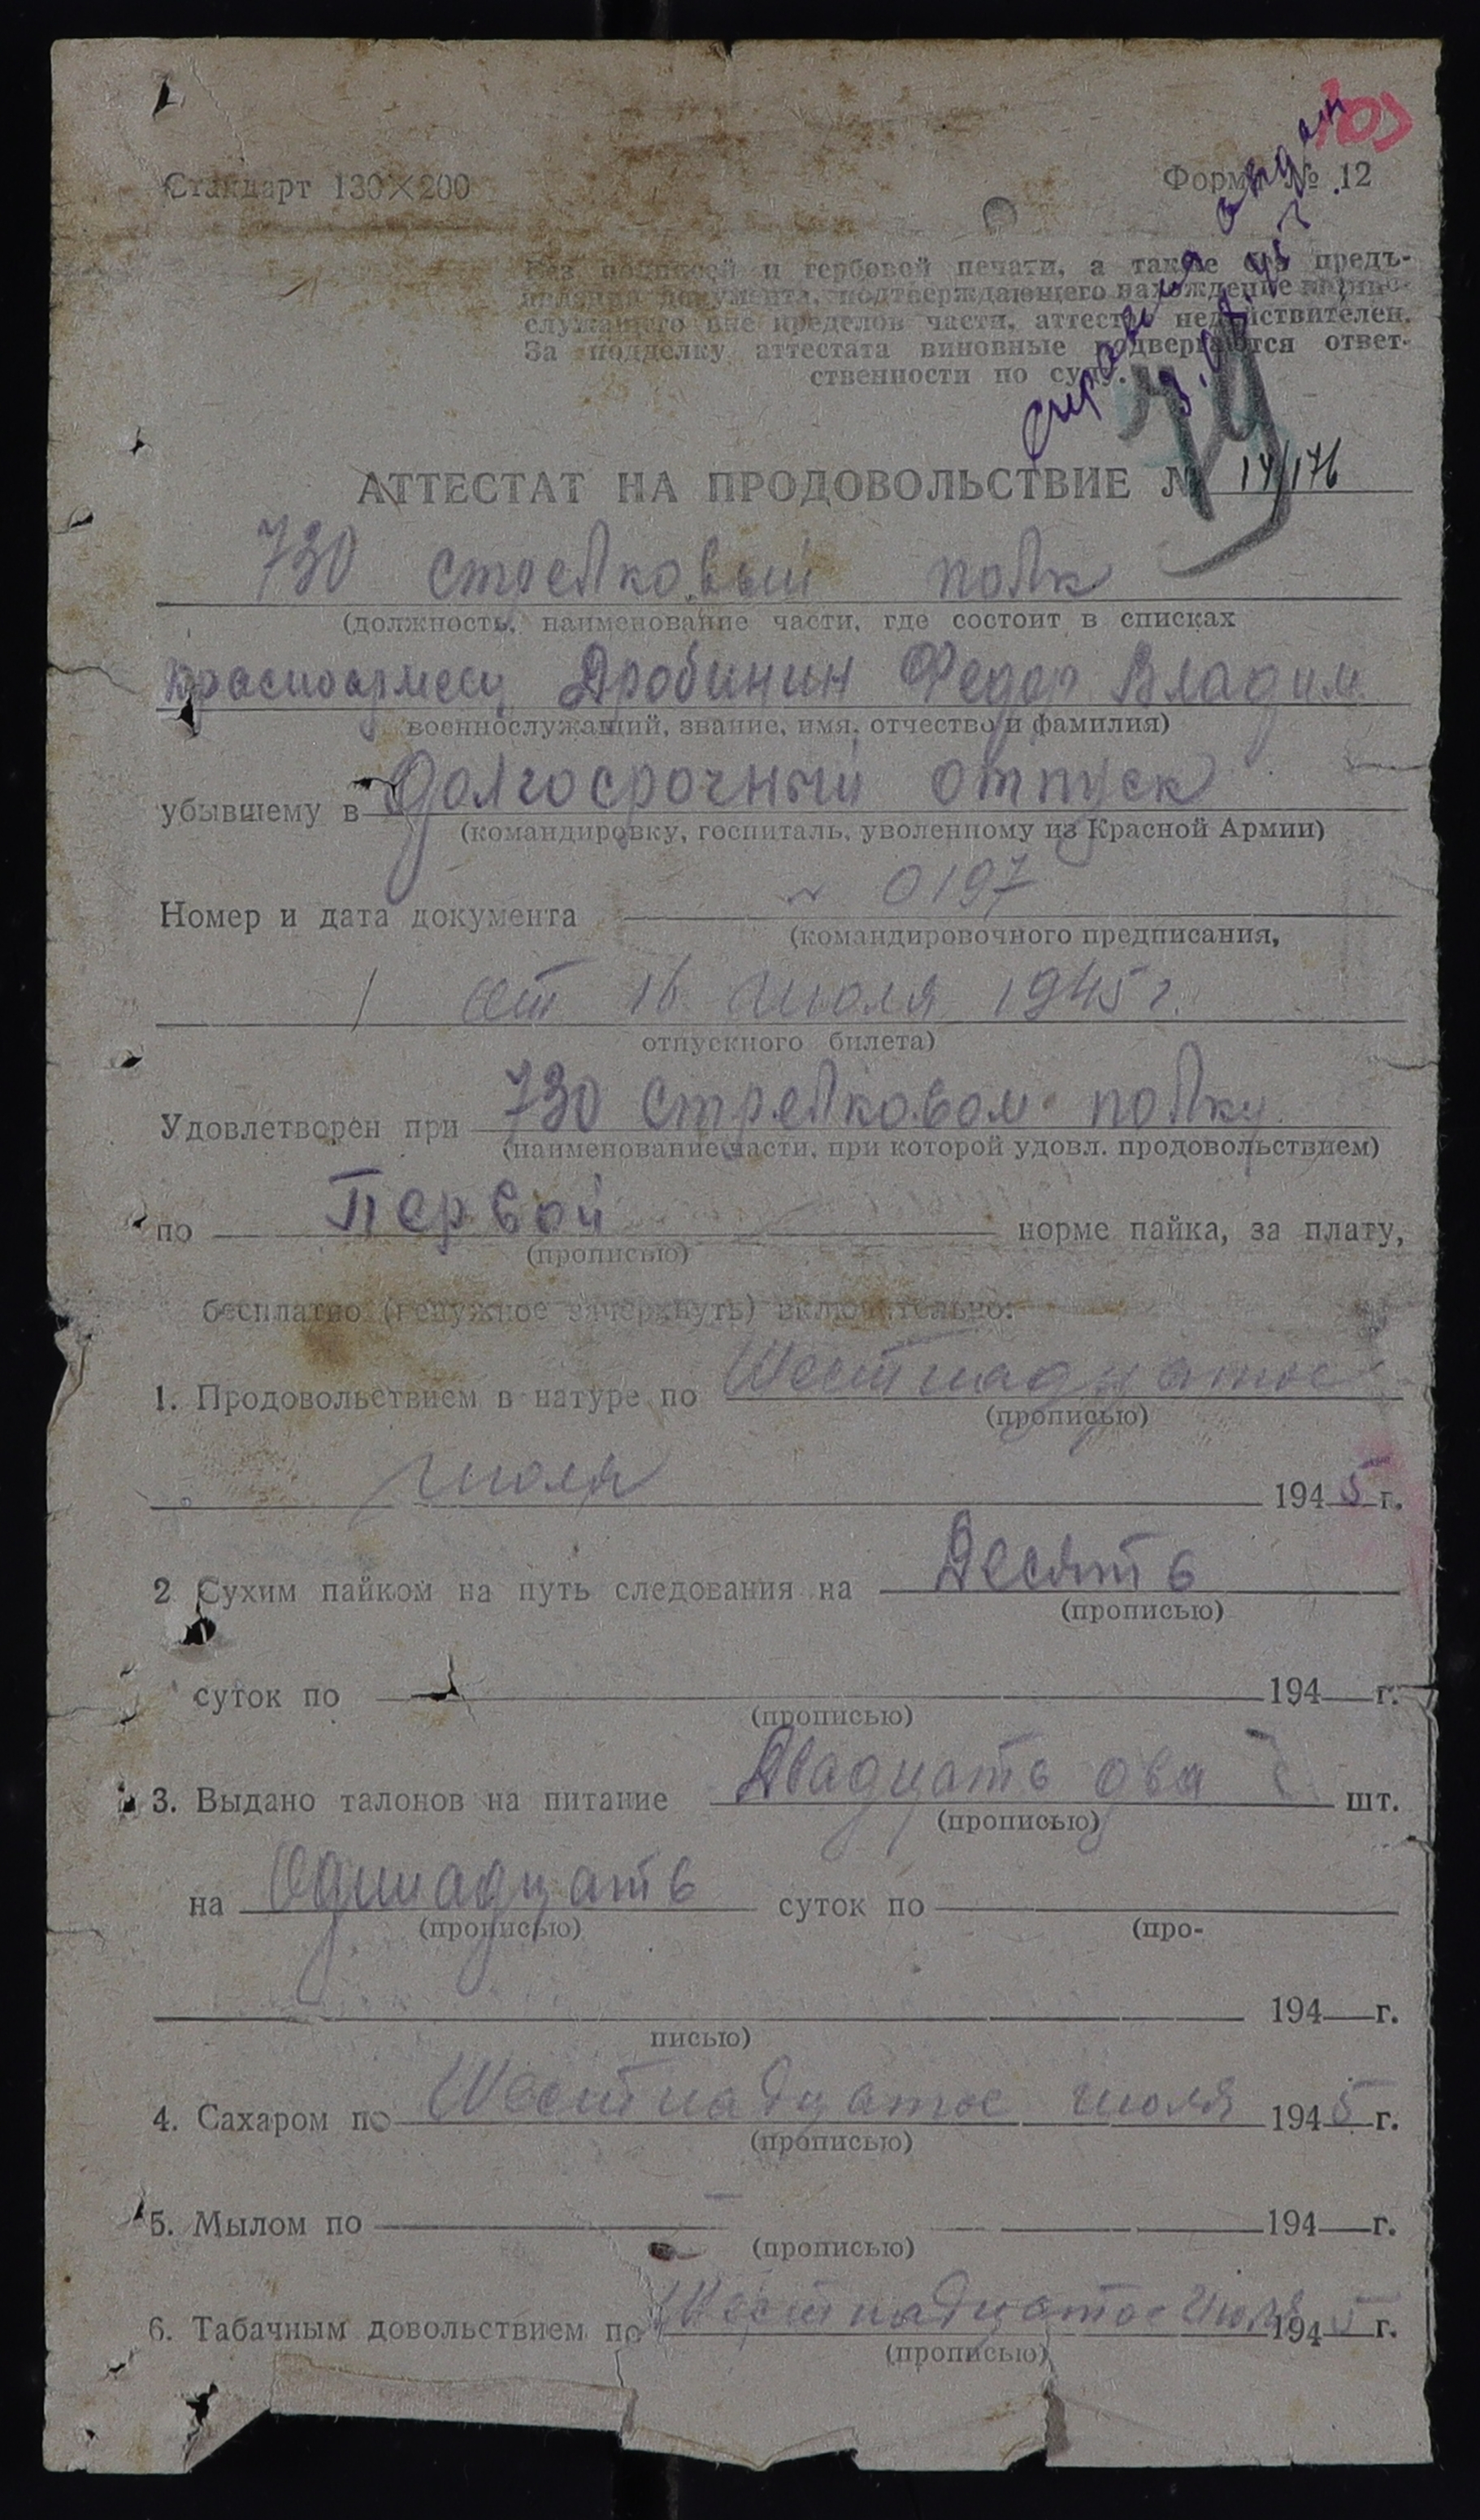 103
Стандарт 130×200
Форма № 12
Справка выдан
Без подписей и гербовой печати, а также без предъ-
явления документа, подтверждающего нахождение военно-
служащего вне пределов части, аттестат недействителен.
За подделку аттестата виновные подвергаются ответ-
ственности по суду.
АТТЕСТАТ НА ПРОДОВОЛЬСТВИЕ № 14/176
730 стрелковый полк
(должность, наименование части, где состоит в списках
красноармеец Дробинин Федор Владим
военнослужащий, звание, имя, отчество и фамилия)
убывшему в долгосрочный отпуск
(командировку, госпиталь, уволенному из Красной Армии)
Номер и дата документа № 0197
(командировочного предписания,
от 16 июля 1945 г.
отпускного билета)
Удовлетворен при 730 стрелковом полку
(наименование части, при которой удовл. продовольствием)
по Первой норме пайка, за плату,
(прописью)
бесплатно (ненужное зачеркнуть) включительно:
1. Продовольствием в натуре по Шестнадцатое
(прописью)
июля 1945 г.
2 Сухим пайком на путь следования на Десять
(прописью)
суток по 194 г.
(прописью)
3. Выдано талонов на питание Двадцать два шт.
(прописью)
на Одинадцать суток по
(прописью) (про-
194 г.
писью)
4. Сахаром по Шестнадцатое июля 1945 г.
(прописью)
5. Мылом по — 194 г.
(прописью)
6. Табачным довольствием по Шестнадцатое июля 1945 г.
(прописью)